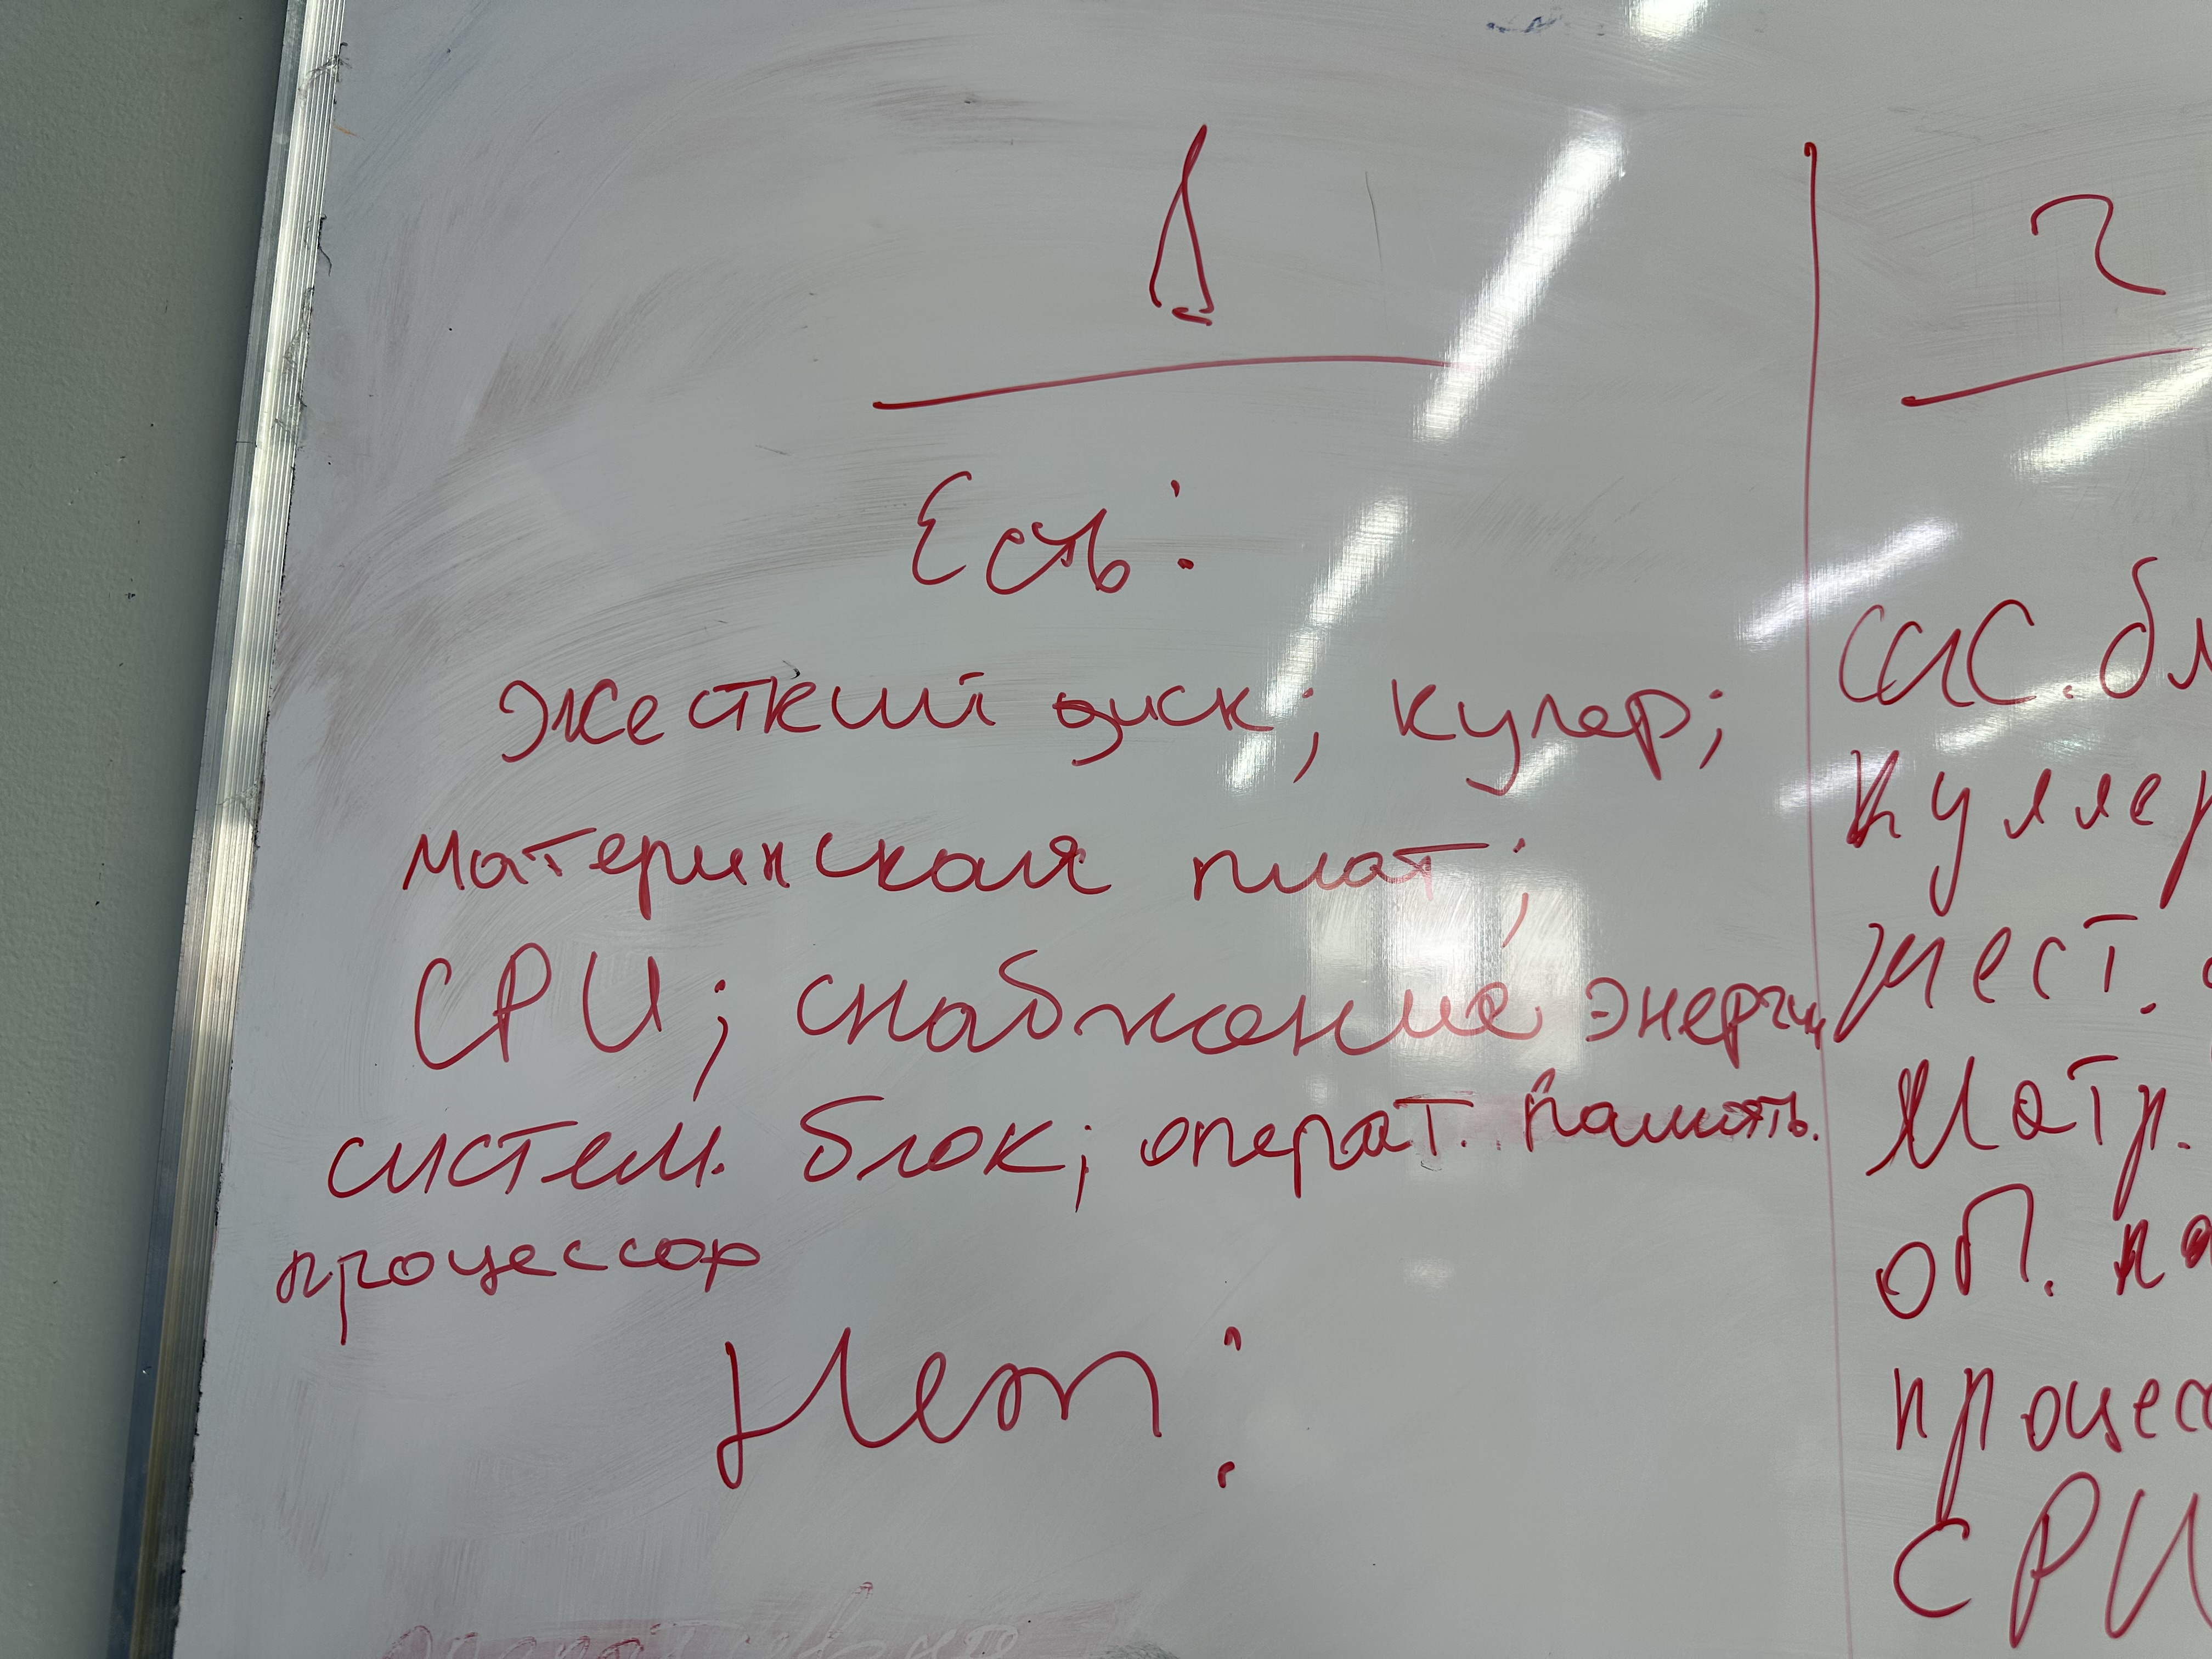 1
Есть:
жесткий диск; кулер;
материнская плат;
CPU; снабжение энерги
систем. блок; операт. память.
процессор
Нет:
2
сис. бл
куллер
жест.
матр.
оп. па
процес
CPU